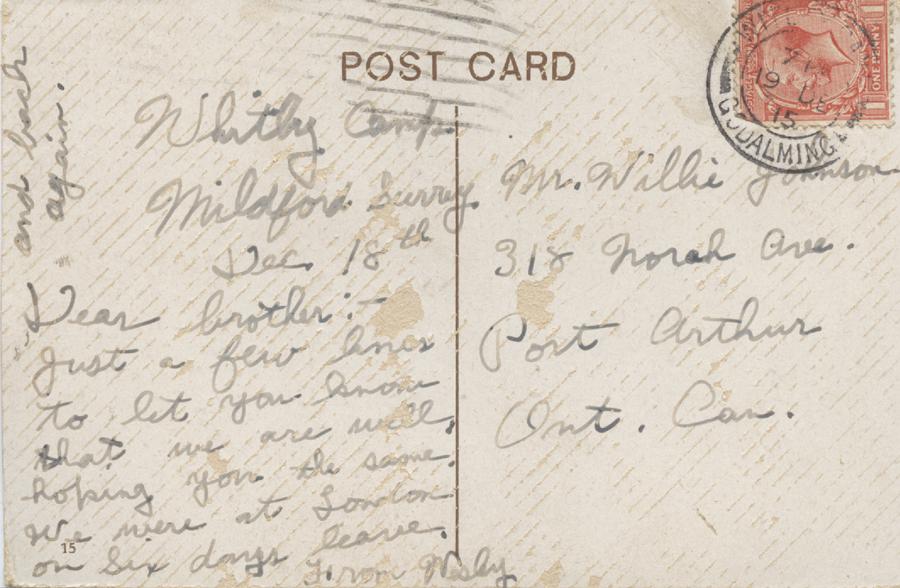 POST CARD
Whitby Camp.
Mildford Surrey.
Dec. 18th
Dear brother:-
Just a few lines
to let you know
that we are well,
hoping you the same.
We were at London
on six days leave.
From Wesly
and back
again.
Mr. Willie Johnson
318 Norah Ave.
Port Arthur
Ont. Can.
GODALMING
19 DE
15
ONE PENNY
1
15